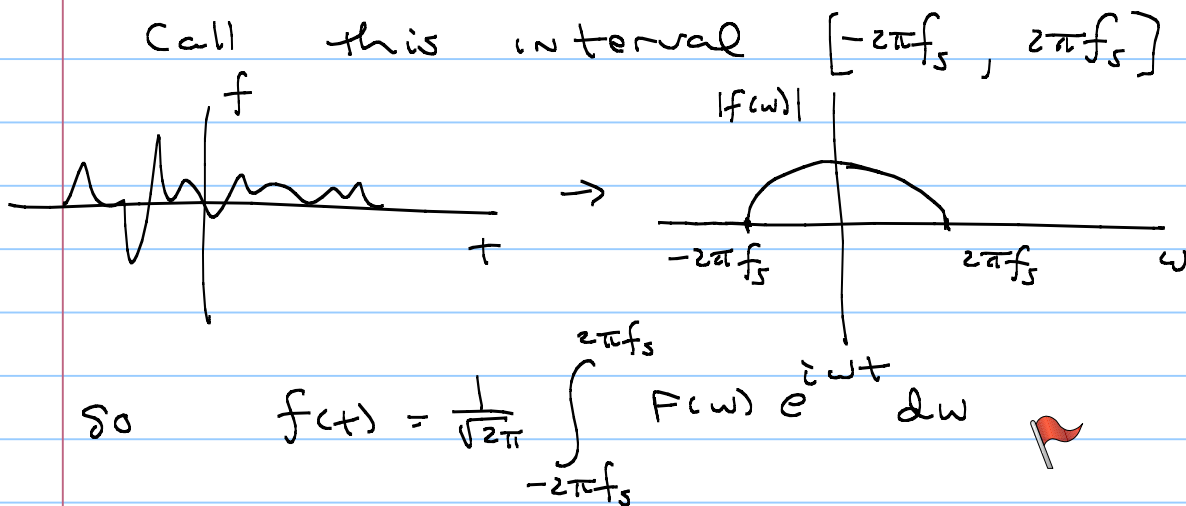 Call this interval [-2πf_s, 2πf_s]
f
|f(ω)|
t
→
-2πf_s
2πf_s
ω
so f(t) = 1/√2π ∫_{-2πf_s}^{2πf_s} F(ω) e^{iωt} dω